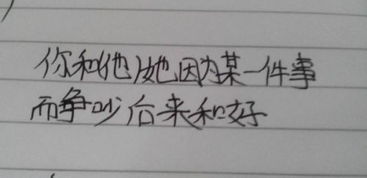 你和他/她因为某一件事
而争吵后来和好